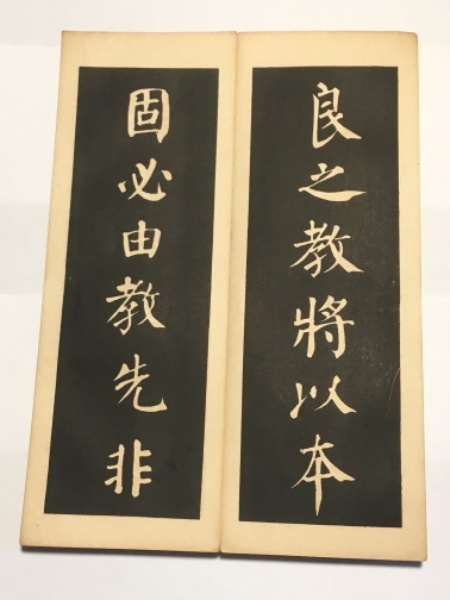 良之教將以本
固必由教先非